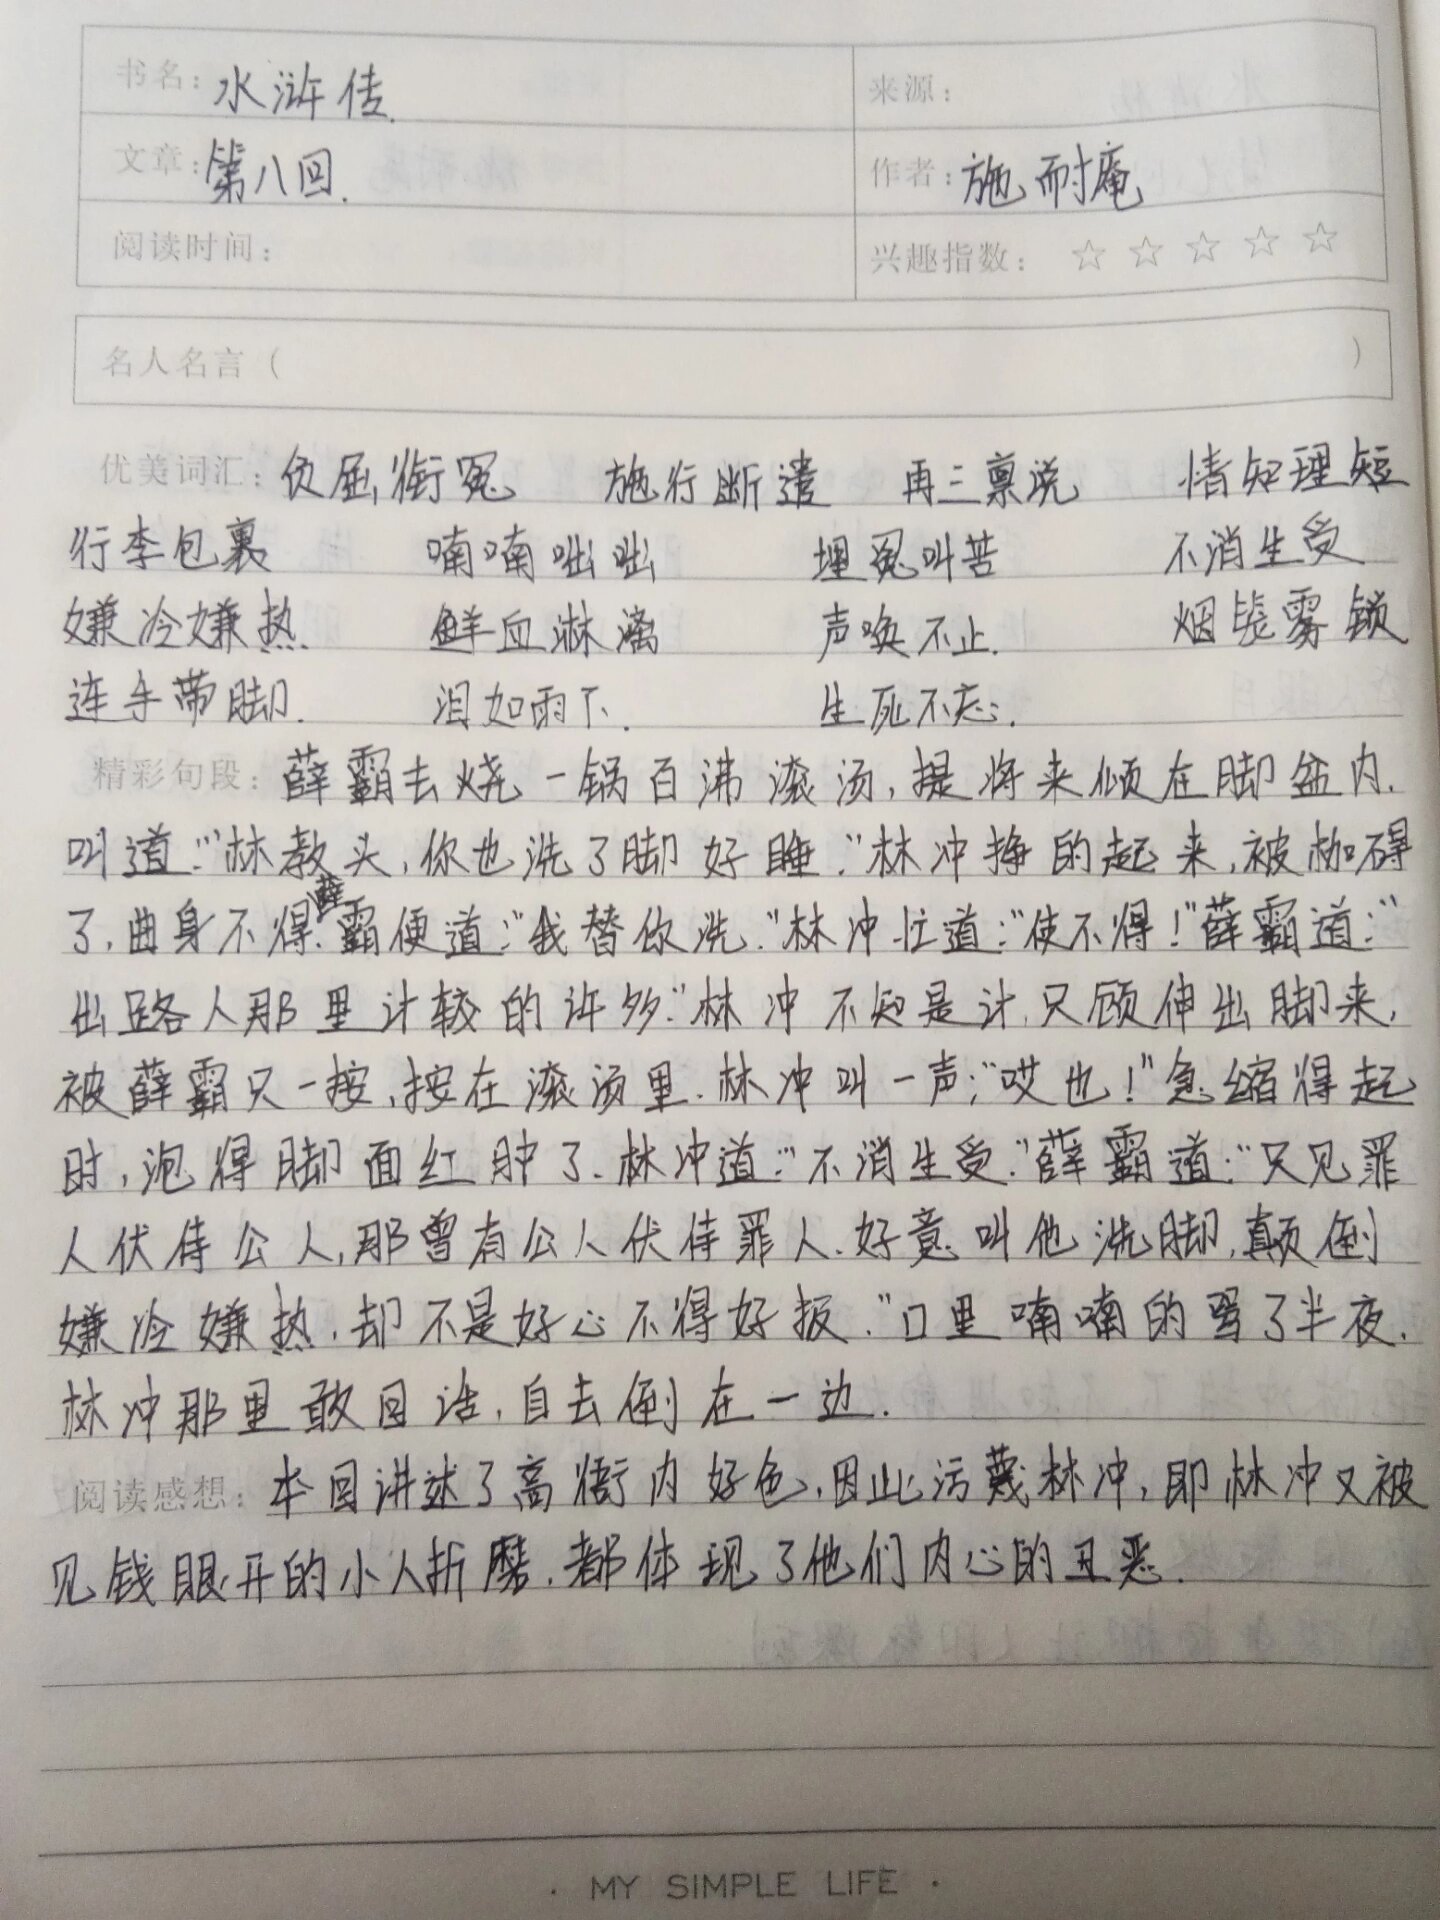 书名：水浒传. 来源：
文章：第八回. 作者：施耐庵
阅读时间： 兴趣指数：☆ ☆ ☆ ☆ ☆
名人名言（ ）
优美词汇：负屈衔冤 施行断遣 再三禀说 情知理短
行李包裹 喃喃咄咄 埋冤叫苦 不消生受
嫌冷嫌热 鲜血淋漓 声唤不止. 烟笼雾锁
连手带脚. 泪如雨下. 生死不忘.
精彩句段：薛霸去烧一锅百沸滚汤,提将来倾在脚盆内.
叫道:“林教头,你也洗了脚好睡.”林冲挣的起来,被枷碍
了,曲身不得.薛霸便道:“我替你洗.”林冲忙道:“使不得!”薛霸道:“
出路人那里计较的许多.”林冲不知是计,只顾伸出脚来,
被薛霸只一按,按在滚汤里.林冲叫一声:“哎也!”急缩得起
时,泡得脚面红肿了.林冲道:“不消生受.”薛霸道:“只见罪
人伏侍公人,那曾有公人伏侍罪人.好意叫他洗脚,颠倒
嫌冷嫌热,却不是好心不得好报.”口里喃喃的骂了半夜.
林冲那里敢回话,自去倒在一边.
阅读感想：本回讲述了高衙内好色,因此污蔑林冲,即林冲又被
见钱眼开的小人折磨.都体现了他们内心的丑恶.
· MY SIMPLE LIFE ·